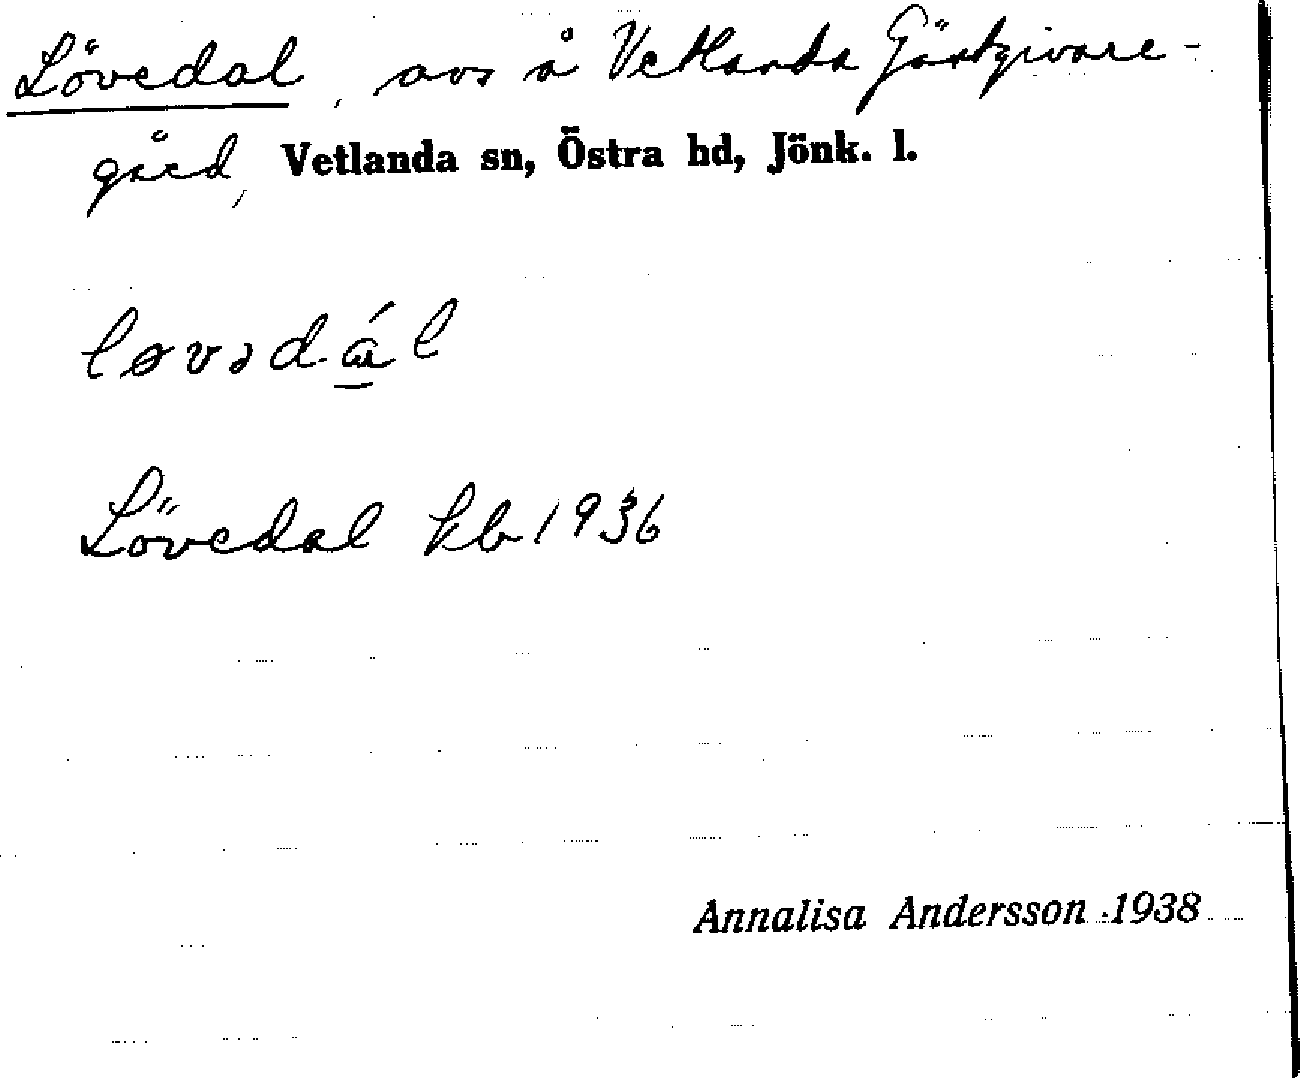 Lövedal, avs å Vetlanda Gästgivare-
gård, Vetlanda sn, Östra hd, Jönk. l.
løvədɑ́l
Lövedal kb 1936
Annalisa Andersson 1938